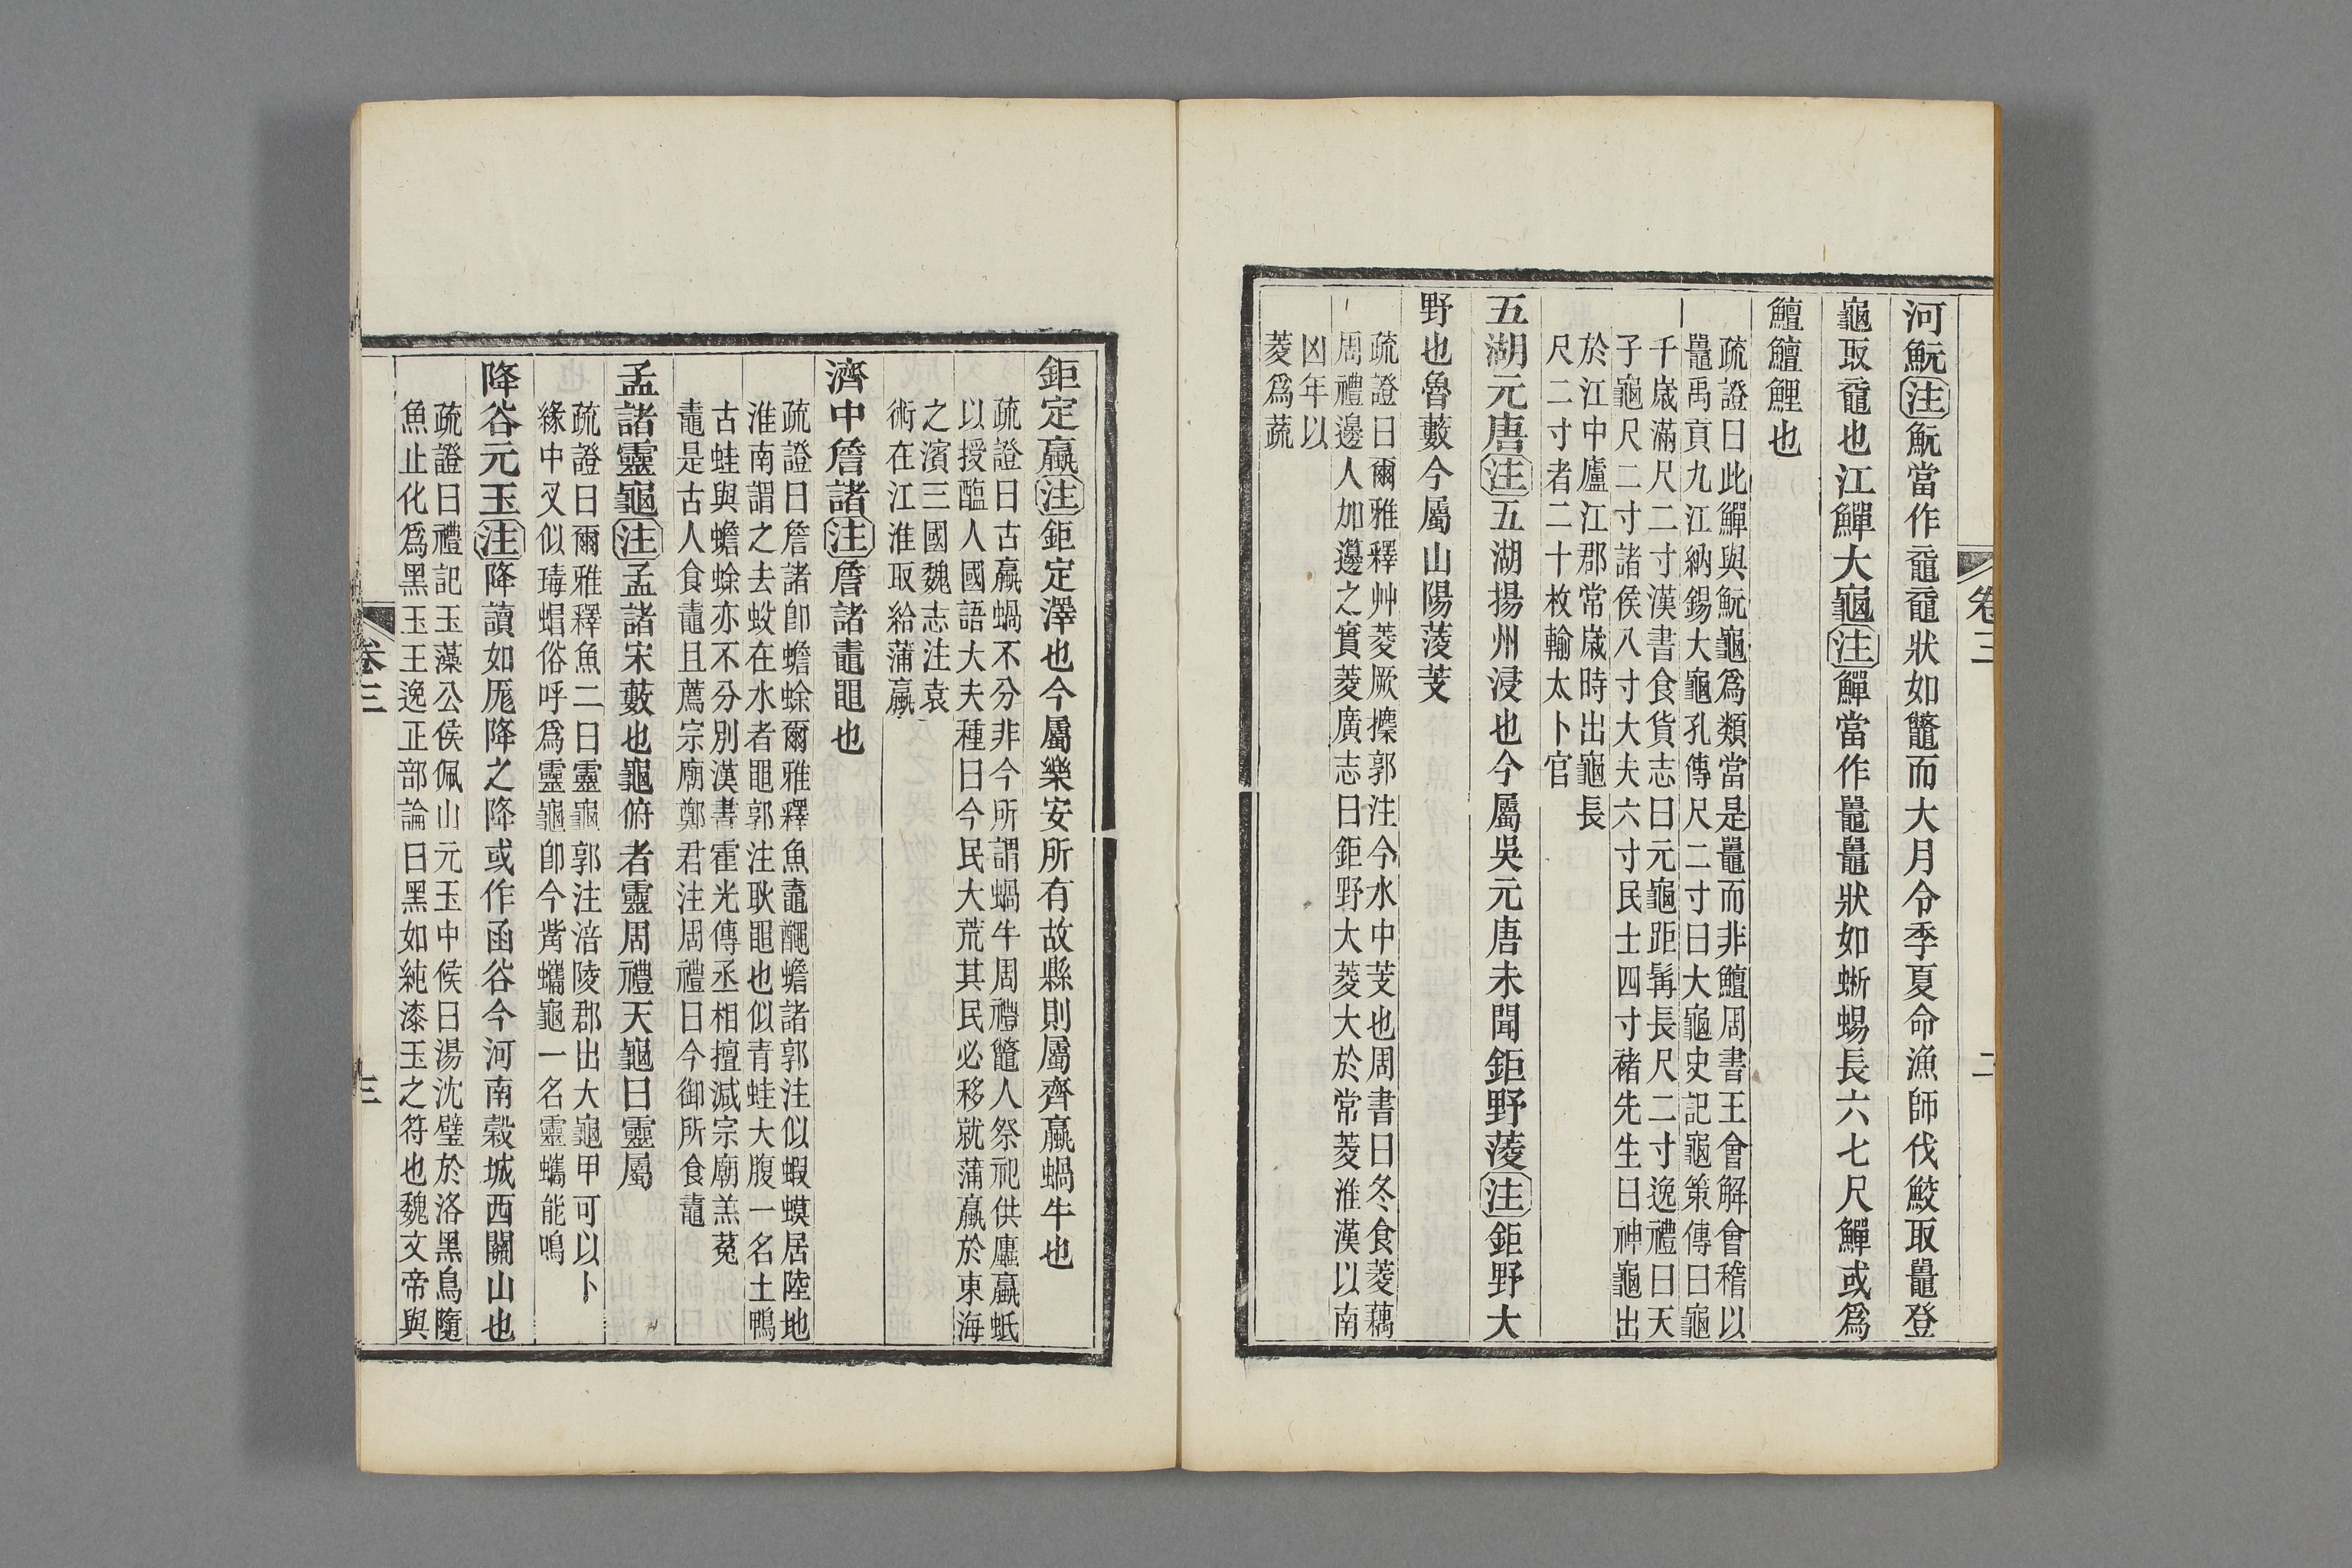 卷三
二
河魭注魭當作黿黿狀如鼈而大月令季夏命漁師伐鮫取鼉登
龜取黿也江鱓大龜注鱓當作鼉鼉狀如蜥蜴長六七尺鱓或爲
鱣鱣鯉也
疏證曰此鱓與魭龜爲類當是鼉而非鱣周書王會解會稽以
鼉禹貢九江納錫大龜孔傳尺二寸曰大龜史記龜策傳曰龜
千歲滿尺二寸漢書食貨志曰元龜距髯長尺二寸逸禮曰天
子龜尺二寸諸侯八寸大夫六寸民士四寸褚先生曰神龜出
於江中廬江郡常歲時出龜長
尺二寸者二十枚輸太卜官
五湖元唐注五湖揚州浸也今屬吳元唐未聞鉅野蔆注鉅野大
野也魯藪今屬山陽蔆芰
疏證曰爾雅釋艸菱厥攗郭注今水中芰也周書曰冬食菱藕
周禮邊人加籩之實菱廣志曰鉅野大菱大於常菱淮漢以南
凶年以
菱爲蔬
鉅定蠃注鉅定澤也今屬樂安所有故縣則屬齊蠃蝸牛也
疏證曰古蠃蝸不分非今所謂蝸牛周禮鼈人祭祀供蠯蠃蚳
以授醢人國語大夫種曰今民大荒其民必移就蒲蠃於東海
之濱三國魏志注袁
術在江淮取給蒲蠃
濟中詹諸注詹諸鼃黽也
疏證曰詹諸卽蟾蜍爾雅釋魚鼃𪓰蟾諸郭注似蝦蟆居陸地
淮南謂之去蚥在水者黽郭注耿黽也似青蛙大腹一名土鴨
古蛙與蟾蜍亦不分別漢書霍光傳丞相擅減宗廟羔菟
鼃是古人食鼃且薦宗廟鄭君注周禮曰今御所食鼃
孟諸靈龜注孟諸宋藪也龜俯者靈周禮天龜曰靈屬
疏證曰爾雅釋魚二曰靈龜郭注涪陵郡出大龜甲可以卜
緣中叉似瑇蝐俗呼爲靈龜卽今觜蠵龜一名靈蠵能鳴
降谷元玉注降讀如厖降之降或作函谷今河南榖城西關山也
疏證曰禮記玉藻公侯佩山元玉中候曰湯沈璧於洛黑鳥隨
魚止化爲黑玉王逸正部論曰黑如純漆玉之符也魏文帝與
卷三
三